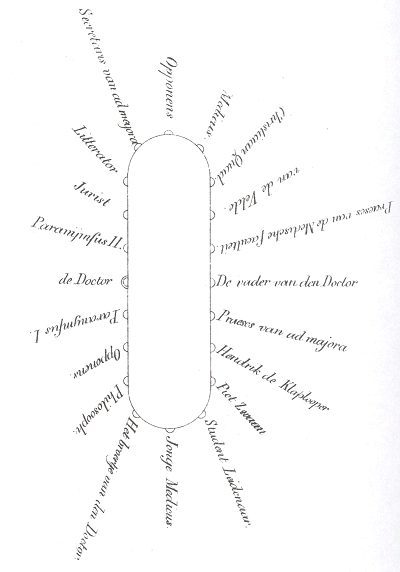 Opponens
Medicus.
Christiaan Quad
van de Velde.
Praeses van de Medische faculteit.
De vader van den Doctor
Praeses van ad majora
Hendrik de Klaplooper
Piet
Student Leidenaar.
Jonge Medicus.
Het broertje van den Doctor.
Philosooph.
Opponens.
Paranymfus I.
de Doctor
Paranijmfus II.
Jurist
Litterator
Secretaris van ad majora